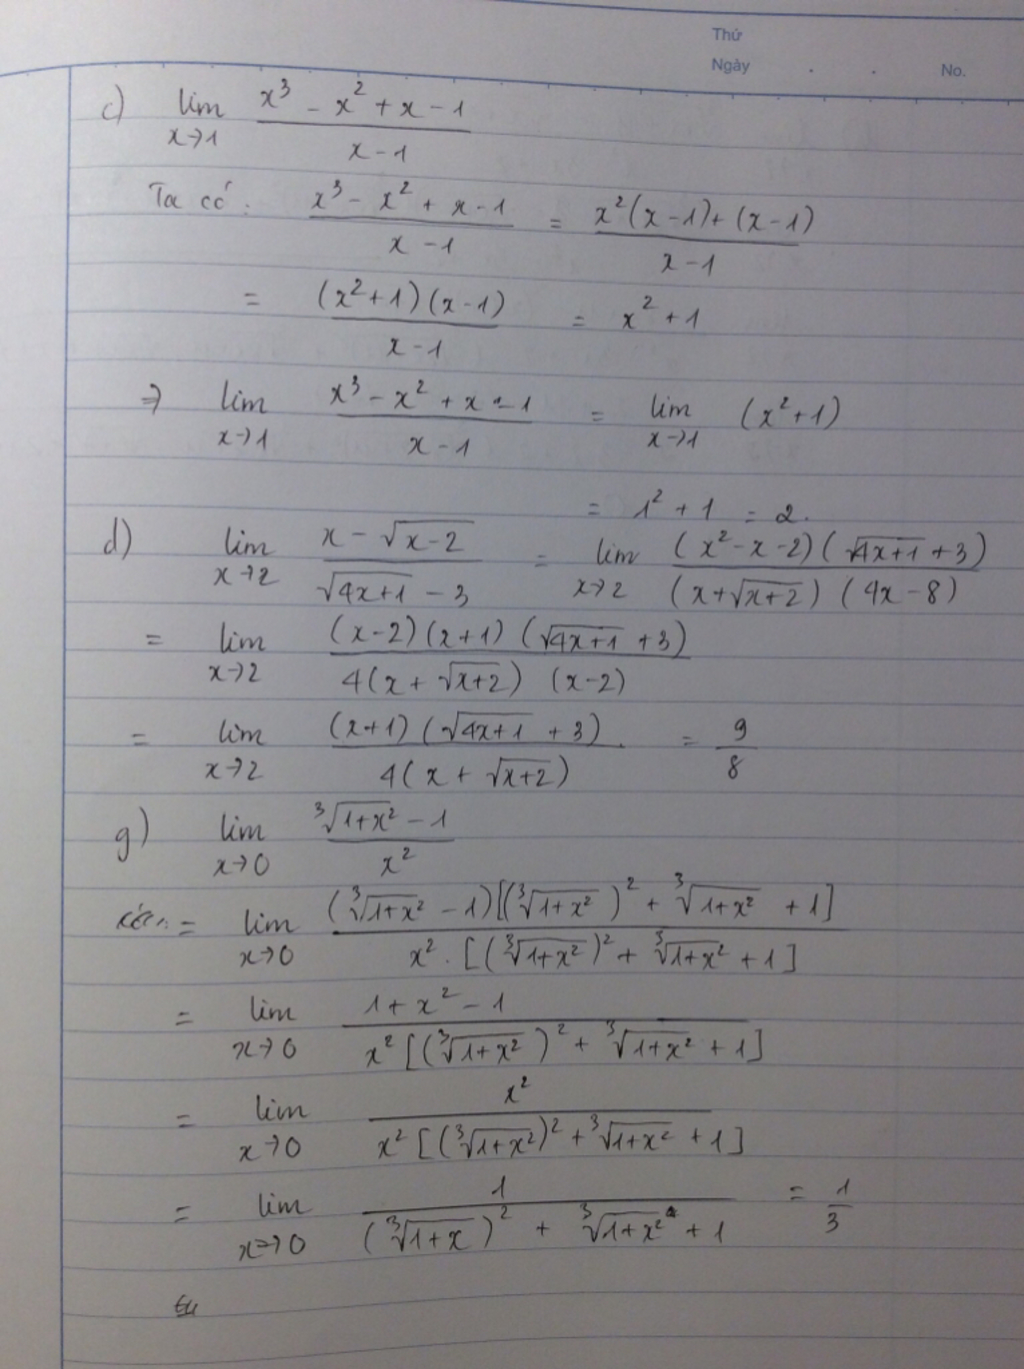 Thứ
Ngày . . No.
c) lim x→1 (x³ - x² + x - 1)/(x - 1)
Ta có: (x³ - x² + x - 1)/(x - 1) = (x²(x - 1) + (x - 1))/(x - 1)
= ((x² + 1)(x - 1))/(x - 1) = x² + 1
⇒ lim x→1 (x³ - x² + x - 1)/(x - 1) = lim x→1 (x² + 1)
= 1² + 1 = 2.
d) lim x→2 (x - √(x - 2))/(√(4x+1) - 3) = lim x→2 ((x² - x - 2)(√(4x+1) + 3))/((x + √(x+2))(4x - 8))
= lim x→2 ((x - 2)(x + 1)(√(4x+1) + 3))/(4(x + √(x+2))(x - 2))
= lim x→2 ((x+1)(√(4x+1) + 3))/(4(x + √(x+2))) = 9/8
g) lim x→0 (∛(1+x²) - 1)/x²
= lim x→0 ((∛(1+x²) - 1)[(∛(1+x²))² + ∛(1+x²) + 1])/(x² . [(∛(1+x²))² + ∛(1+x²) + 1])
= lim x→0 (1 + x² - 1)/(x²[(∛(1+x²))² + ∛(1+x²) + 1])
= lim x→0 x²/(x²[(∛(1+x²))² + ∛(1+x²) + 1])
= lim x→0 1/((∛(1+x))² + ∛(1+x²) + 1) = 1/3